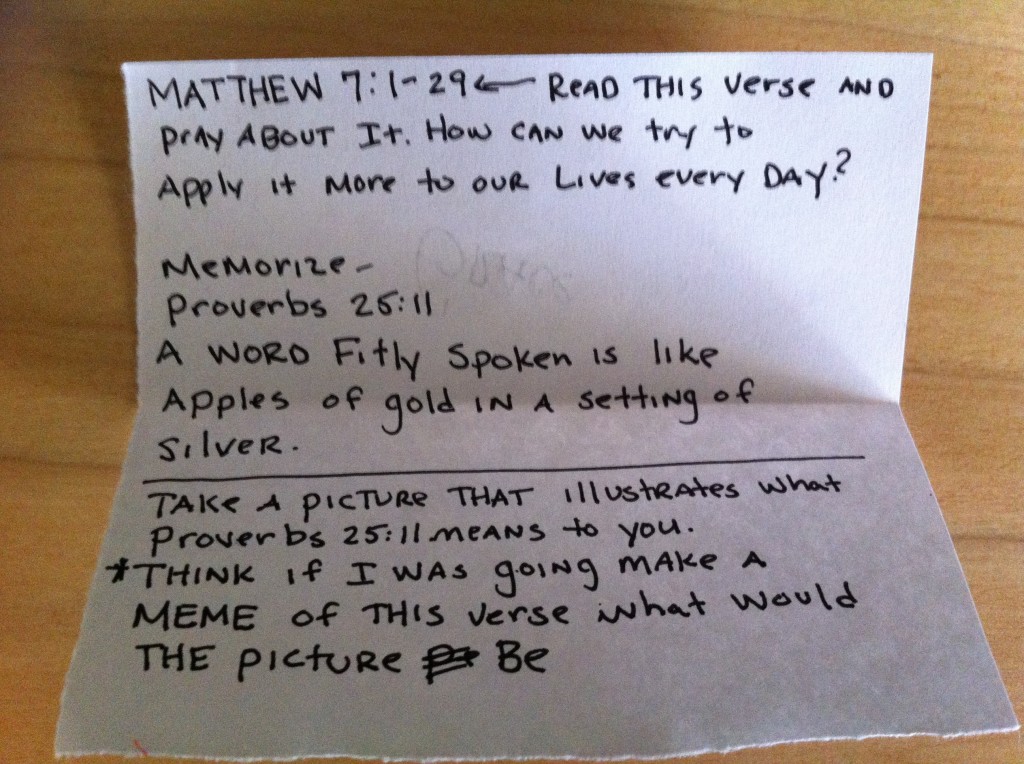 MATTHEW 7:1-29← READ THIS verse AND
pray ABOUT It. How CAN we try to
Apply it More to our Lives every DAY?
Memorize-
Proverbs 25:11
A WORD Fitly Spoken is like
Apples of gold IN A setting of
silver.
TAKE A picture THAT illustrates what
Proverbs 25:11 MEANS to you.
*THINK if I WAS going MAKE A
MEME of THIS verse what would
THE picture Be